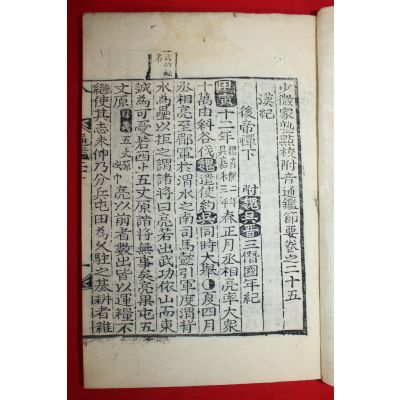 少微家塾點校附音通鑑節要卷之二十五
漢紀
後帝禪下 附魏吳晉三僭國年紀
甲寅十二年 魏靑龍二年 吳嘉禾三年 春正月丞相亮率大衆
十萬由斜谷伐魏遣使約吳同時大擧●夏四月
丞相亮至郿軍於渭水之南司馬懿引軍度渭背
水為壘以拒之謂諸將曰亮若出武功依山而東
誠為可憂若西上五丈原諸將無事矣亮果屯五
丈原 五丈原 亮以前者數出皆以運糧不
繼使其志未伸乃分兵屯田為久駐之基耕者雜